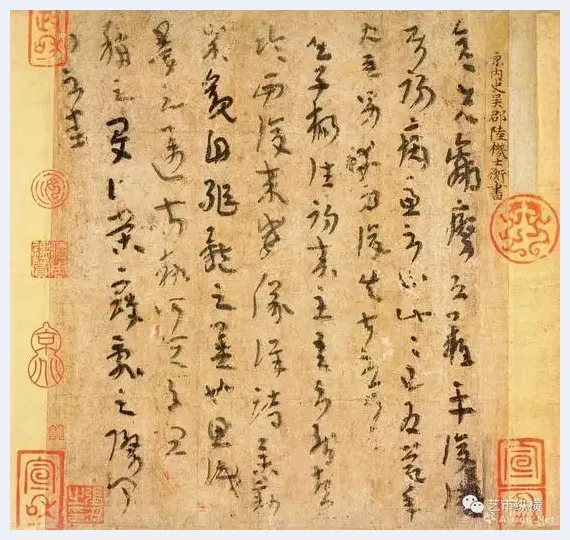 原內史吳郡陸機士衡書
彦先羸瘵恐難平復往屬
初病慮不止此此已為慶承
使唯男幸為復失前憂耳
吳子楊往初來主吾不能盡
臨西復來威儀詳跱舉動
成觀自軀體之美也思識
量之邁前執所恒有宜
稱之夏伯榮寇亂之際聞
問不悉
政和
宣和
宣和
艺市纵横
Artron.Net